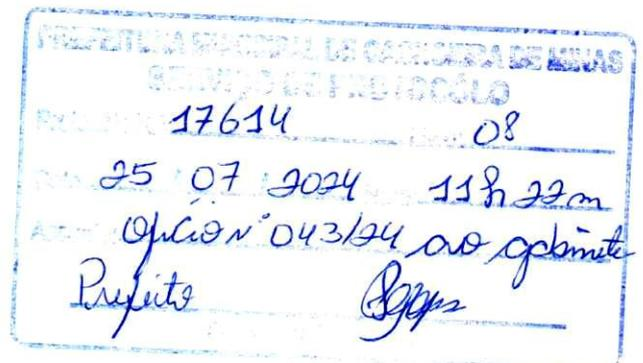 PREFEITURA MUNICIPAL DE CACHOEIRA DE MINAS
SERVIÇO DE PROTOCOLO
17614 08
25 07 2024 11h 22m
Ofício nº 043/24 ao gabinete
Prefeito